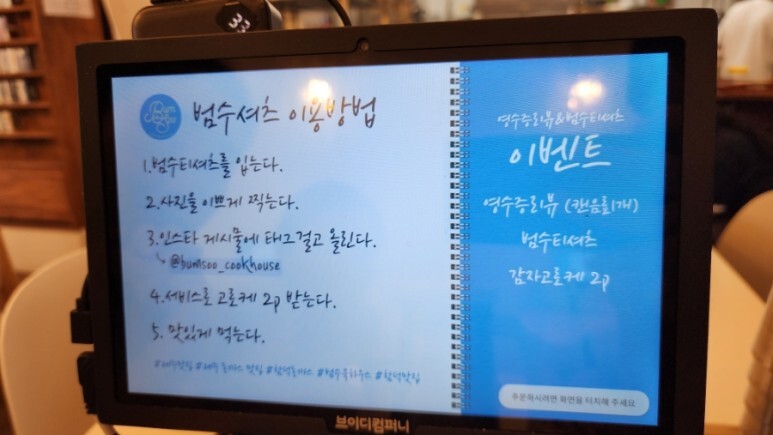 33
Bum Soo
범수셔츠 이용방법
1.범수티셔츠를 입는다.
2.사진을 이쁘게 찍는다.
3.인스타 게시물에 태그걸고 올린다.
↳ @bumsoo_cookhouse
4.서비스로 고로케 2p 받는다.
5. 맛있게 먹는다.
#제주맛집 #제주 돈까스 맛집 #함덕돈까스 #범수쿡하우스 #함덕맛집
영수증리뷰&범수티셔츠
이벤트
영수증리뷰 (캔음료1개)
범수티셔츠
감자고로케 2p
주문하시려면 화면을 터치해 주세요
브이디컴퍼니